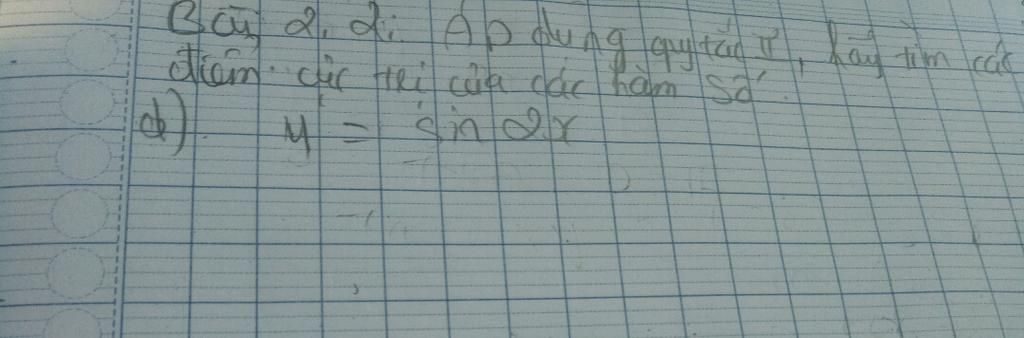 Bài 2.2: Áp dụng quy tắc II, hãy tìm các
điểm cực trị của các hàm số
d) y = sin 2x